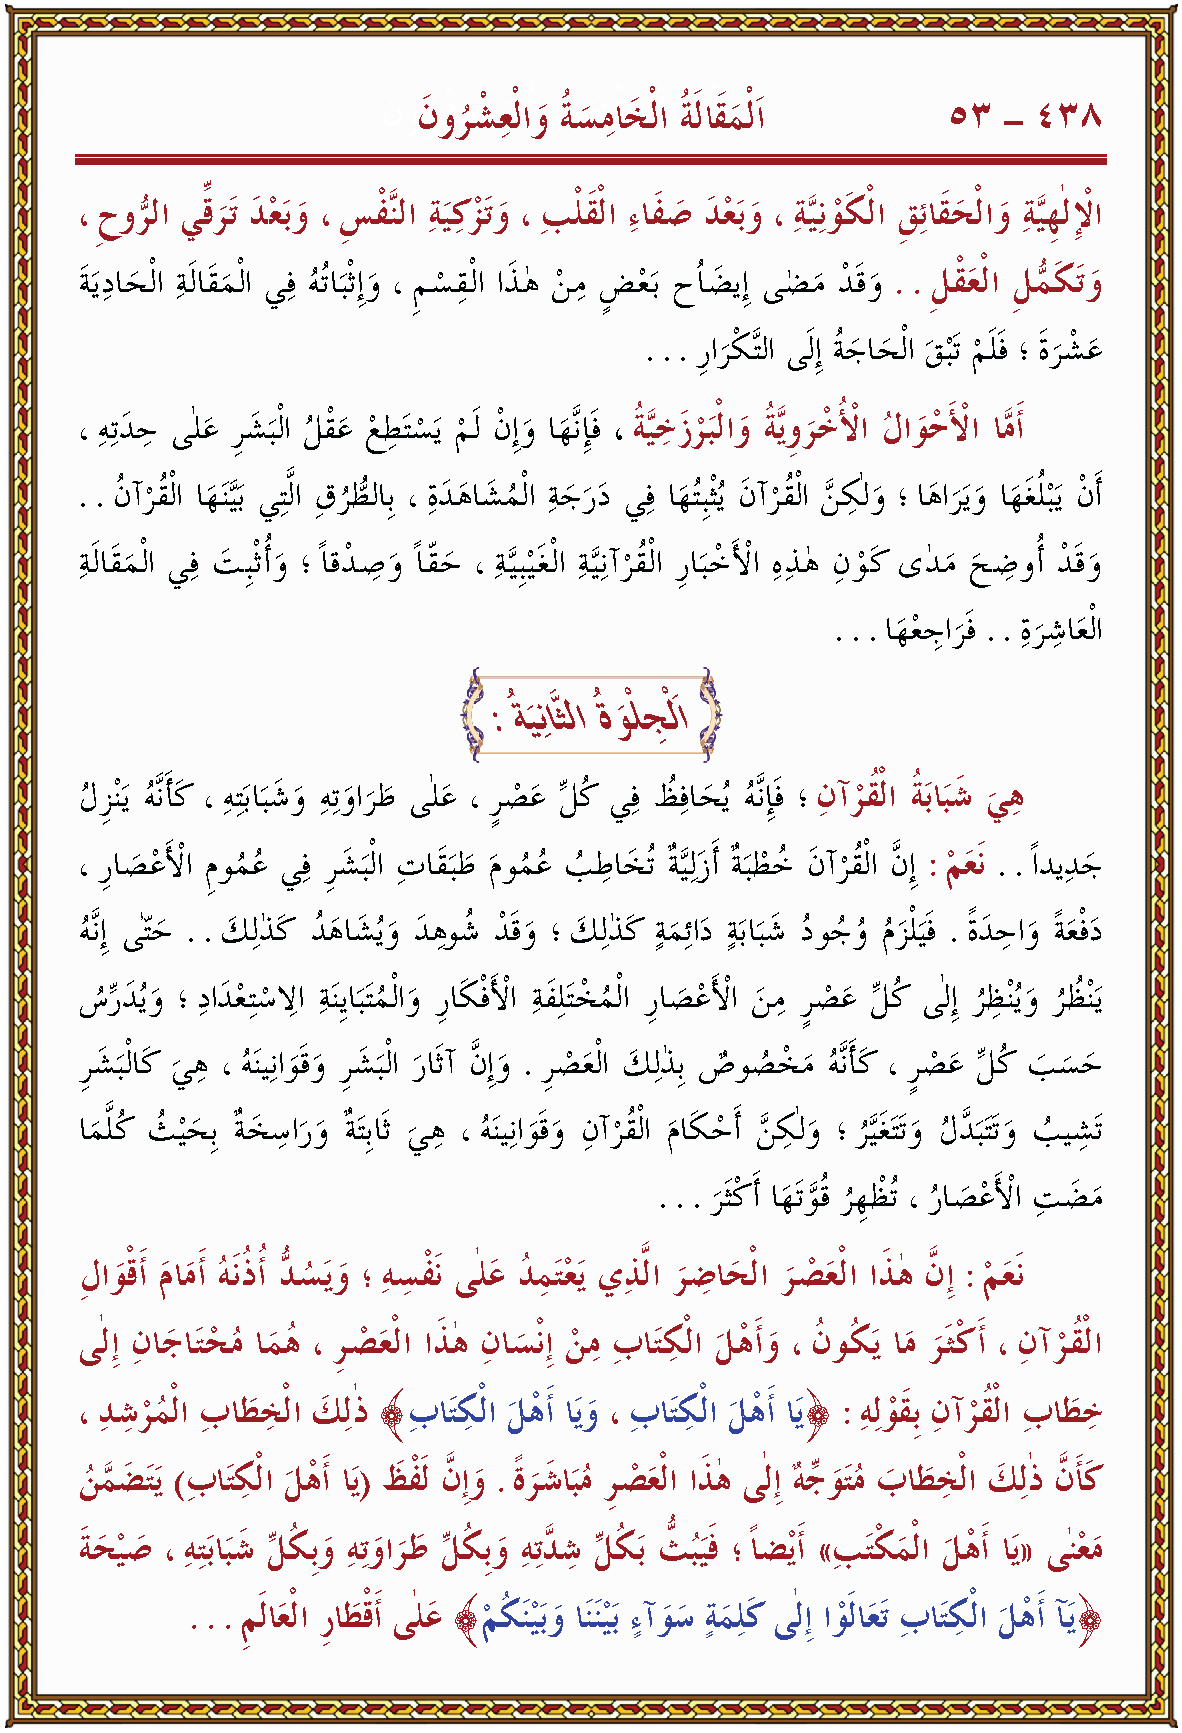 ٤٣٨ – ٥٣ اَلْمَقَالَةُ الْخَامِسَةُ وَالْعِشْرُونَ
الْإِلٰهِيَّةِ وَالْحَقَائِقِ الْكَوْنِيَّةِ ، وَبَعْدَ صَفَاءِ الْقَلْبِ ، وَتَزْكِيَةِ النَّفْسِ ، وَبَعْدَ تَرَقِّي الرُّوحِ ،
وَتَكَمُّلِ الْعَقْلِ . . وَقَدْ مَضٰى إِيضَاحُ بَعْضٍ مِنْ هٰذَا الْقِسْمِ ، وَإِثْبَاتُهُ فِي الْمَقَالَةِ الْحَادِيَةَ
عَشْرَةَ ؛ فَلَمْ تَبْقَ الْحَاجَةُ إِلَى التَّكْرَارِ . . .
أَمَّا الْأَحْوَالُ الْأُخْرَوِيَّةُ وَالْبَرْزَخِيَّةُ ، فَإِنَّهَا وَإِنْ لَمْ يَسْتَطِعْ عَقْلُ الْبَشَرِ عَلٰى حِدَتِهِ ،
أَنْ يَبْلُغَهَا وَيَرَاهَا ؛ وَلٰكِنَّ الْقُرْآنَ يُثْبِتُهَا فِي دَرَجَةِ الْمُشَاهَدَةِ ، بِالطُّرُقِ الَّتِي بَيَّنَهَا الْقُرْآنُ . .
وَقَدْ أُوضِحَ مَدٰى كَوْنِ هٰذِهِ الْأَخْبَارِ الْقُرْآنِيَّةِ الْغَيْبِيَّةِ ، حَقّاً وَصِدْقاً ؛ وَأُثْبِتَ فِي الْمَقَالَةِ
الْعَاشِرَةِ . . فَرَاجِعْهَا . . .
اَلْجِلْوَةُ الثَّانِيَةُ :
هِيَ شَبَابَةُ الْقُرْآنِ ؛ فَإِنَّهُ يُحَافِظُ فِي كُلِّ عَصْرٍ ، عَلٰى طَرَاوَتِهِ وَشَبَابَتِهِ ، كَأَنَّهُ يَنْزِلُ
جَدِيداً . . نَعَمْ : إِنَّ الْقُرْآنَ خُطْبَةٌ أَزَلِيَّةٌ تُخَاطِبُ عُمُومَ طَبَقَاتِ الْبَشَرِ فِي عُمُومِ الْأَعْصَارِ ،
دَفْعَةً وَاحِدَةً . فَيَلْزَمُ وُجُودُ شَبَابَةٍ دَائِمَةٍ كَذٰلِكَ ؛ وَقَدْ شُوهِدَ وَيُشَاهَدُ كَذٰلِكَ . . حَتّٰى إِنَّهُ
يَنْظُرُ وَيُنْظِرُ إِلٰى كُلِّ عَصْرٍ مِنَ الْأَعْصَارِ الْمُخْتَلِفَةِ الْأَفْكَارِ وَالْمُتَبَايِنَةِ الِاسْتِعْدَادِ ؛ وَيُدَرِّسُ
حَسَبَ كُلِّ عَصْرٍ ، كَأَنَّهُ مَخْصُوصٌ بِذٰلِكَ الْعَصْرِ . وَإِنَّ آثَارَ الْبَشَرِ وَقَوَانِينَهُ ، هِيَ كَالْبَشَرِ
تَشِيبُ وَتَتَبَدَّلُ وَتَتَغَيَّرُ ؛ وَلٰكِنَّ أَحْكَامَ الْقُرْآنِ وَقَوَانِينَهُ ، هِيَ ثَابِتَةٌ وَرَاسِخَةٌ بِحَيْثُ كُلَّمَا
مَضَتِ الْأَعْصَارُ ، تُظْهِرُ قُوَّتَهَا أَكْثَرَ . . .
نَعَمْ : إِنَّ هٰذَا الْعَصْرَ الْحَاضِرَ الَّذِي يَعْتَمِدُ عَلٰى نَفْسِهِ ؛ وَيَسُدُّ أُذُنَهُ أَمَامَ أَقْوَالِ
الْقُرْآنِ ، أَكْثَرَ مَا يَكُونُ ، وَأَهْلَ الْكِتَابِ مِنْ إِنْسَانِ هٰذَا الْعَصْرِ ، هُمَا مُحْتَاجَانِ إِلٰى
خِطَابِ الْقُرْآنِ بِقَوْلِهِ : ﴿يَا أَهْلَ الْكِتَابِ ، وَيَا أَهْلَ الْكِتَابِ﴾ ذٰلِكَ الْخِطَابِ الْمُرْشِدِ ،
كَأَنَّ ذٰلِكَ الْخِطَابَ مُتَوَجِّهٌ إِلٰى هٰذَا الْعَصْرِ مُبَاشَرَةً . وَإِنَّ لَفْظَ (يَا أَهْلَ الْكِتَابِ) يَتَضَمَّنُ
مَعْنٰى «يَا أَهْلَ الْمَكْتَبِ» أَيْضاً ؛ فَيَبُثُّ بَكُلِّ شِدَّتِهِ وَبِكُلِّ طَرَاوَتِهِ وَبِكُلِّ شَبَابَتِهِ ، صَيْحَةَ
﴿يَآ أَهْلَ الْكِتَابِ تَعَالَوْا إِلٰى كَلِمَةٍ سَوَآءٍ بَيْنَنَا وَبَيْنَكُمْ﴾ عَلٰى أَقْطَارِ الْعَالَمِ . . .